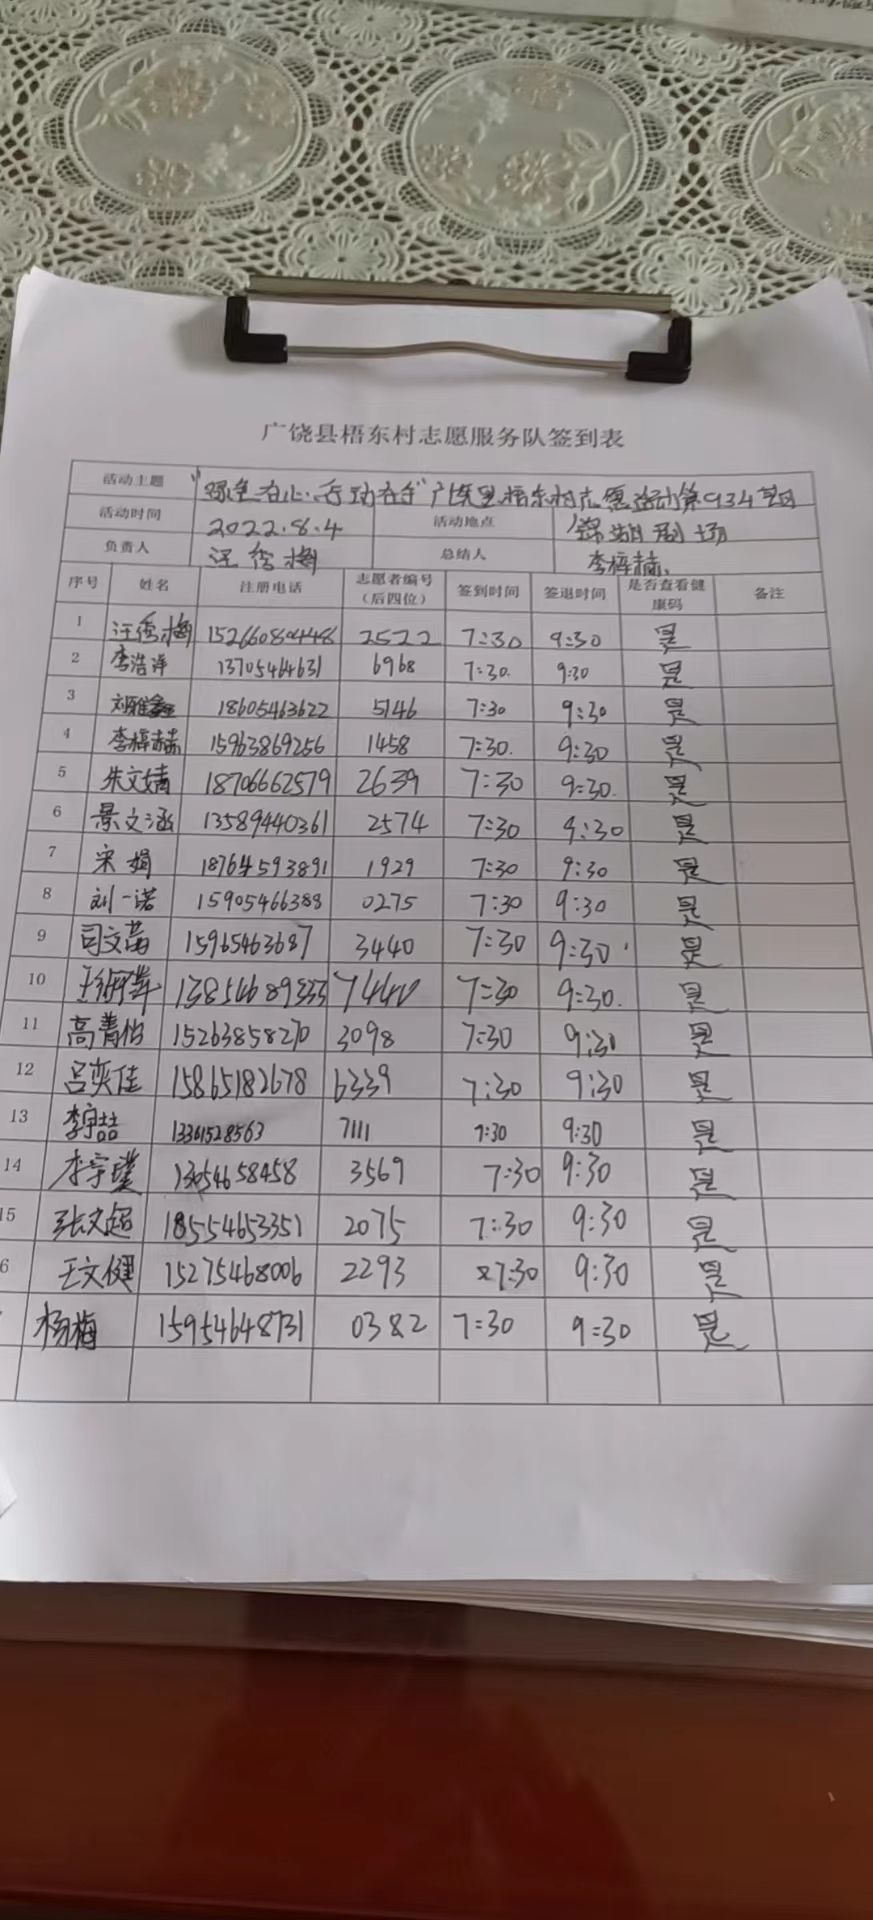 广饶县梧东村志愿服务队签到表
活动主题 "绿色在心·行动在手"广饶县梧东村志愿活动第934期
活动时间 2022.8.4 活动地点 锦湖剧场
负责人 汪秀梅 总结人 李梓赫
序号 姓名 注册电话 志愿者编号（后四位） 签到时间 签退时间 是否查看健康码 备注
1 汪秀梅 15266080448 2522 7:30 9:30 是
2 李浩洋 13705464631 6968 7:30. 9:30 是
3 刘雅鑫 18605463622 5146 7:30 9:30 是
4 李梓赫 15963869256 1458 7:30. 9:30 是
5 朱文婧 18706662579 2639 7:30 9:30. 是
6 景文涵 13589440361 2574 7:30 9:30 是
7 宋娟 18764593891 1929 7:30 9:30 是
8 刘一诺 15905466388 0275 7:30 9:30 是
9 司文菡 15965463687 3440 7:30 9:30 是
10 13854689333 7440 7:30 9:30. 是
11 高菁怡 15263858270 3098 7:30 9:30 是
12 吕奕佳 15865182678 6339 7:30 9:30 是
13 李宇喆 13361528563 7111 7:30 9:30 是
14 李宇璞 13054658458 3569 7:30 9:30 是
15 张文超 18554653351 2075 7:30 9:30 是
6 王文健 15275468006 2293 7:30 9:30 是
杨梅 15954648731 0382 7:30 9:30 是